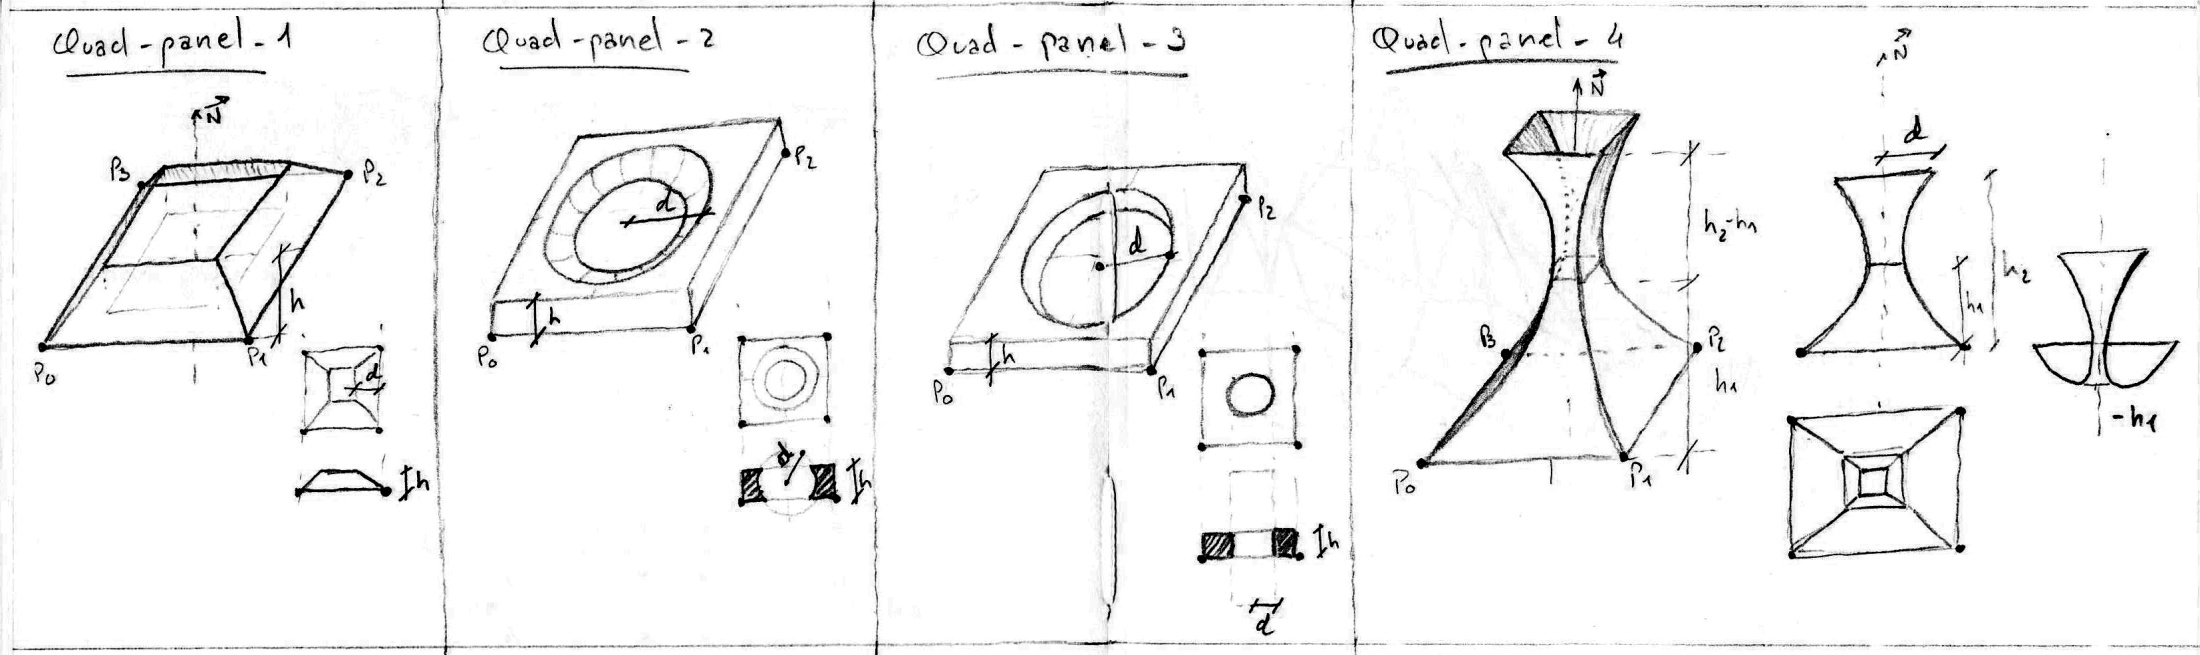 Quad-panel-1
N
P3
P2
h
P0
P1
d
h
Quad-panel-2
P2
d
h
P0
P1
d
h
Quad-panel-3
P2
d
h
P0
P1
h
d
Quad-panel-4
N
h2-h1
P3
P2
h1
P0
P1
N
d
h2
h1
-h1